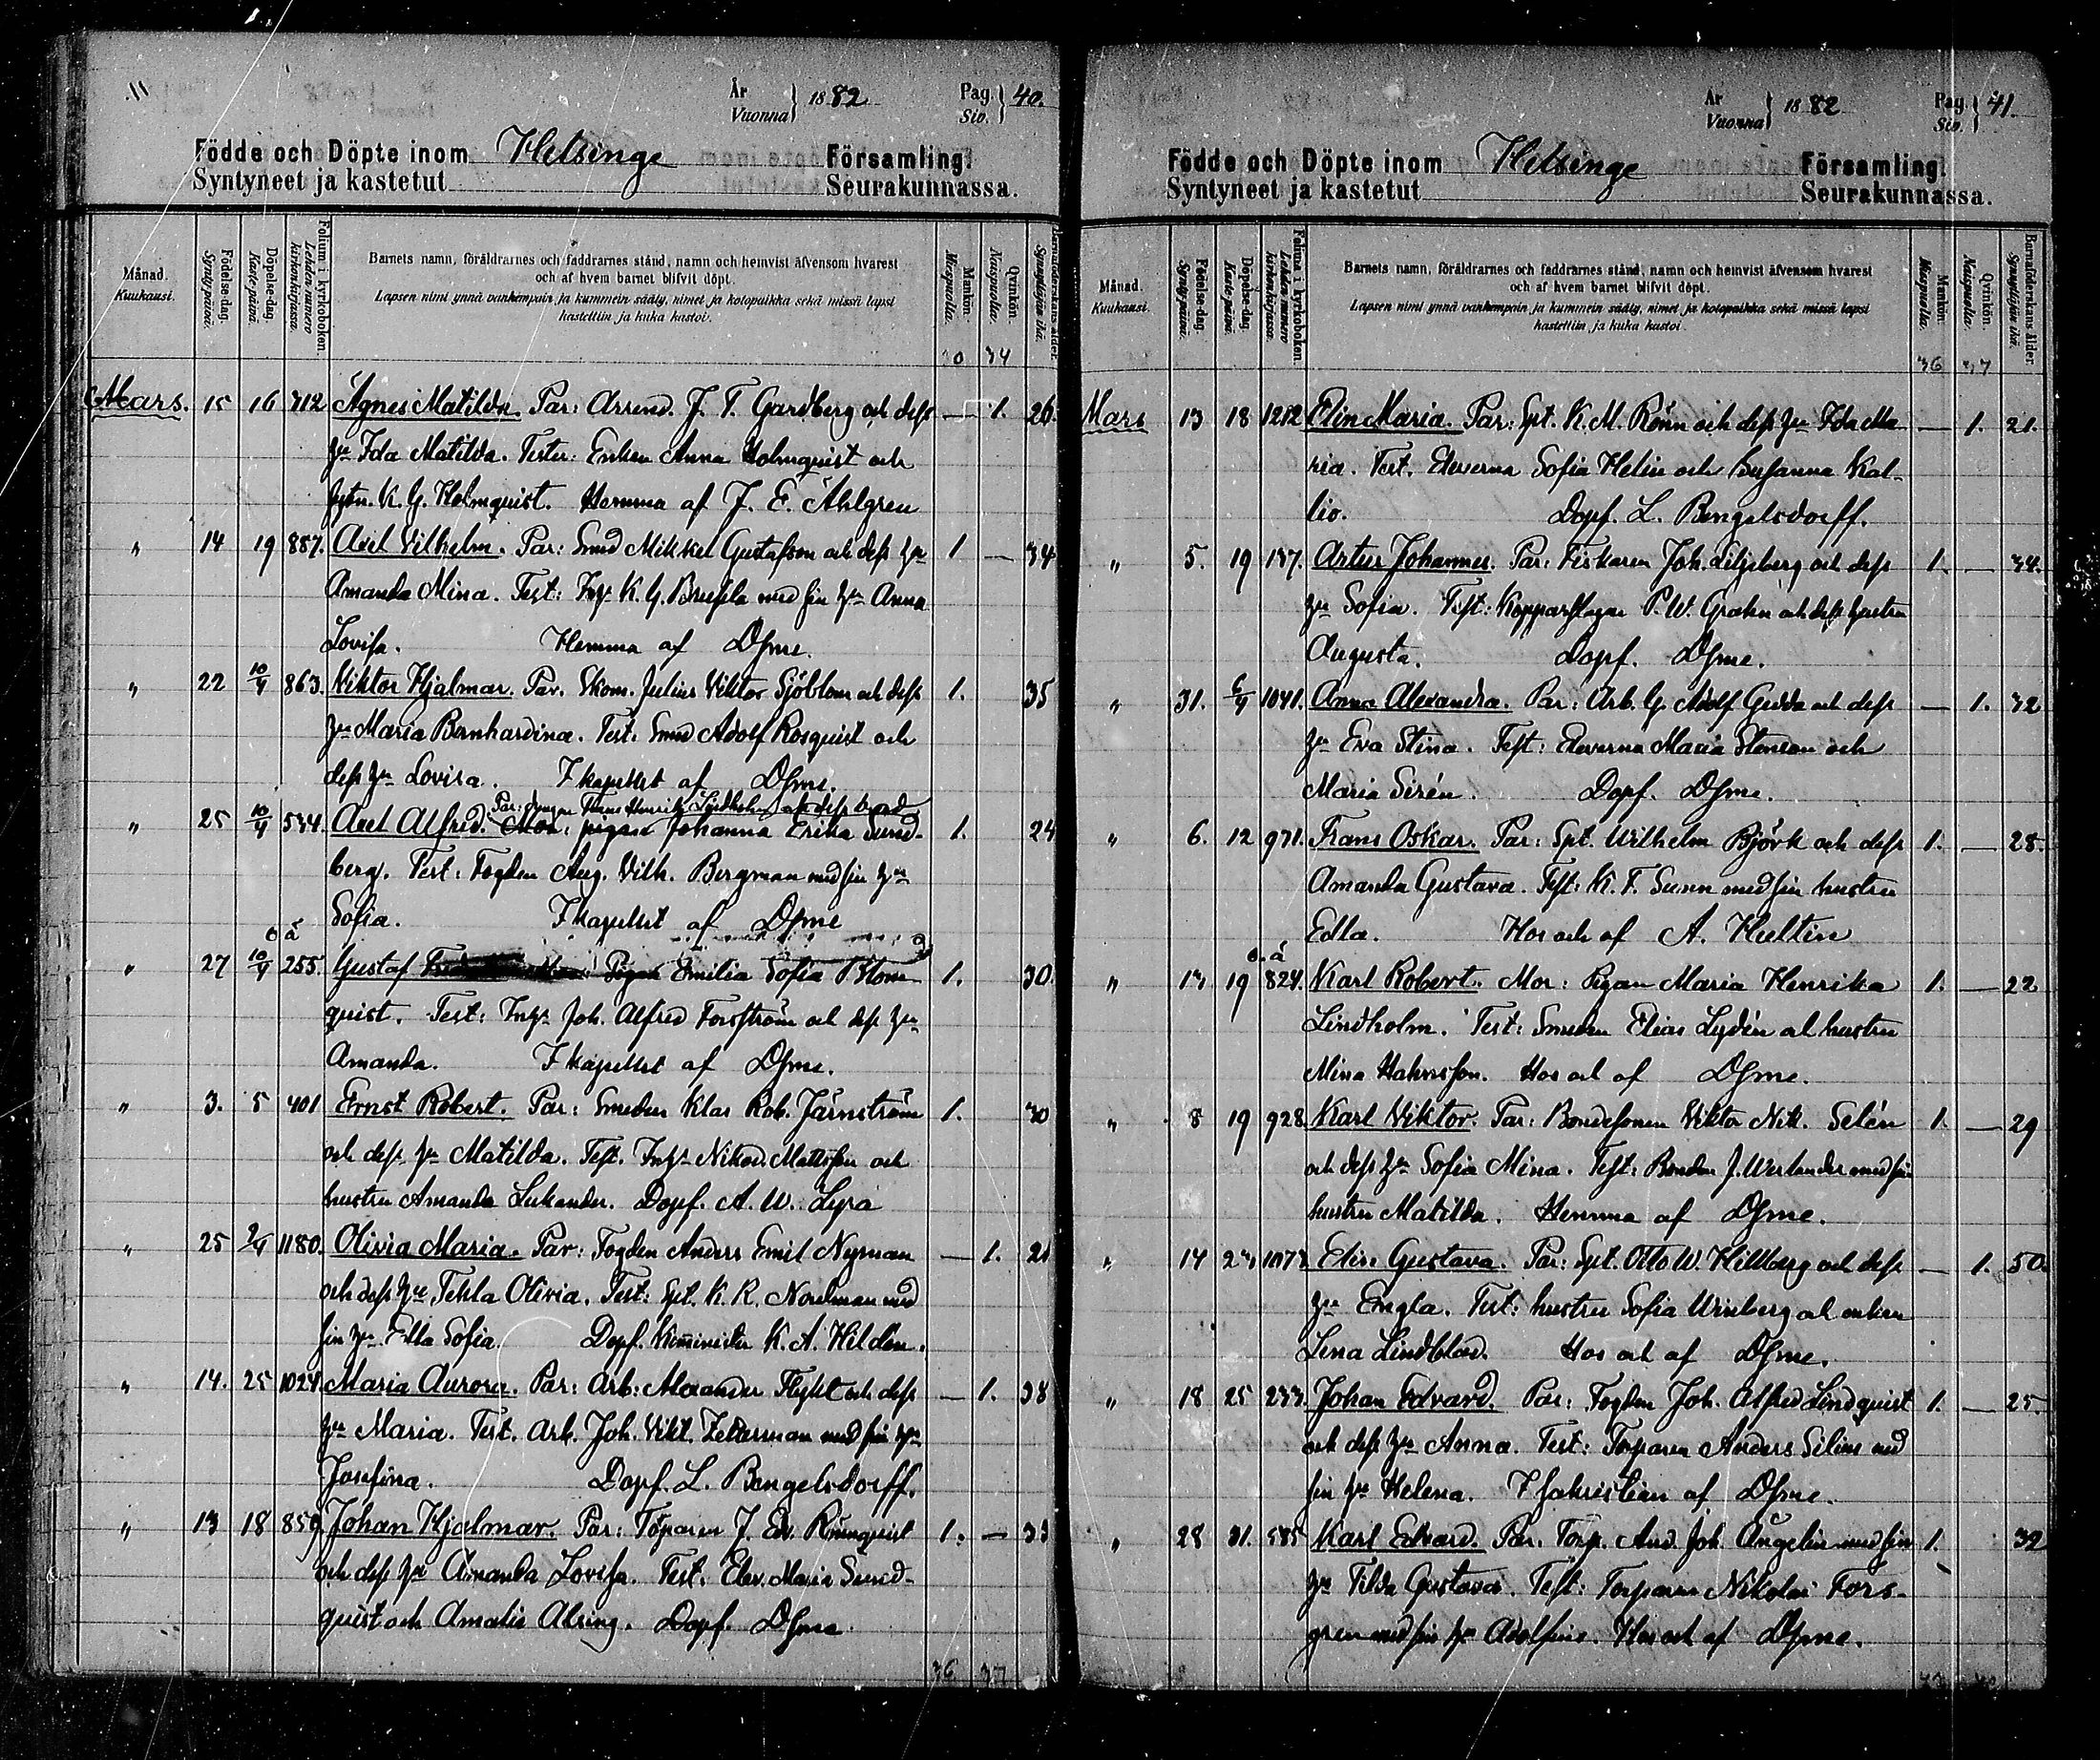 År
Vuonna } 1882
Pag.
Siv. } 40.
Födde och Döpte inom Helsinge Församling.
Syntyneet ja kastetut Seurakunnassa.
Månad.
Kuukausi.
Födelse-dag.
Synty-päivä.
Döpelse-dag.
Kaste-päivä.
Folium i kyrkoboken.
Lehden numero kirkonkirjassa.
Barnets namn, föräldrarnes och faddrarnes stånd, namn och hemvist äfvensom hvarest
och af hvem barnet blifvit döpt.
Lapsen nimi ynnä vanhempain ja kummein sääty, nimet ja kotopaikka sekä missä lapsi
kastettiin ja kuka kastoi.
Mankön.
Miespuolia.
Qvinkön.
Naispuolia.
Barnaföderskans ålder.
Synnyttäjän ikä.
30 34
Mars. 15 16 312 Agnes Matilda. Par: Arrend. J. T. Gardberg och dess — 1. 26.
hu Ida Matilda. Testes: Enkan Anna Holmquist och
K. G. Holmquist. Hemma af J. E. Ahlgren
" 14 19 887. Axel Vilhelm. Par: Smed Mikkel Gustafson och dess hu 1 — 34
Amanda Mina. Test: Inh. K. G. med sin hu Anna
Lovisa. Hemma af Dsme.
" 22 10/4 863. Viktor Hjalmar. Par. Skom. Julius Viktor Sjöblom och dess 1. 35
hu Maria Bernhardina. Test: Smed Adolf Rosquist och
dess hu Lovisa. I kapellet af Dsme.
Par: drengen Frans Henrik Lindholm och dess brud
" 25 10/4 534. Axel Alfred. Mor: pigan Johanna Erika Sund- 1. 24
berg. Test: Fogden Aug. Vilh. Bergman med sin hu
Sofia. I kapellet af Dsme
o ä
" 27 10/4 255. Gustaf Pigan Emilia Sofia Blom- 1. 30.
quist. Test: Inh. Joh. Alfred Forsström och dess hu
Amanda. I kapellet af Dsme.
" 3. 5 401 Ernst Robert. Par: Smeden Klas Rob. Järnström 1. 30
och dess hu Matilda. Test. Inh. Nikod. Mattsson och
hustru Amanda Lukander. Dopf. A. W. Lyra
" 25 2/4 1180. Olivia Maria. Par: Fogden Anders Emil Nyman — 1. 21
och dess hu Tekla Olivia. Test: Spt. K. R. Nordman med
sin hu Edla Sofia. Dopf. Kominister K. A. Hildén.
" 14. 25 1024. Maria Aurora. Par: Arb: Alexander Flykt och dess — 1. 38
hu Maria. Test. Arb. Joh. Vikt. Zetterman med sin hu
Josefina. Dopf. L. Bengelsdorff.
" 13 18 859. Johan Hjalmar. Par: Torparen J. Edv. Rönnquist 1. — 33
och dess hu Amanda Lovisa. Test. Elev. Maria Sund-
quist och Amalie Alsing. Dopf. Dsme
36 37
År
Vuonna } 1882
Pag.
Siv. } 41.
Födde och Döpte inom Helsinge Församling.
Syntyneet ja kastetut Seurakunnassa.
Månad.
Kuukausi.
Födelse-dag.
Synty-päivä.
Döpelse-dag.
Kaste-päivä.
Folium i kyrkoboken.
Lehden numero kirkonkirjassa.
Barnets namn, föräldrarnes och faddrarnes stånd, namn och hemvist äfvensom hvarest
och af hvem barnet blifvit döpt.
Lapsen nimi ynnä vanhempain ja kummein sääty, nimet ja kotopaikka sekä missä lapsi
kastettiin ja kuka kastoi.
Mankön.
Miespuolia.
Qvinkön.
Naispuolia.
Barnaföderskans ålder.
Synnyttäjän ikä.
36 37
Mars 13 18 1212 Elin Maria. Par: Spt. K. M. Rönn och dess hu Ida Ma- — 1. 21.
ria. Test. Eleverna Sofia Helin och Susanna Kal-
lio. Dopf. L. Bengelsdorff.
" 5. 19 137. Artur Johannes. Par: Fiskaren Joh. Liljeberg och dess 1. — 34.
hu Sofia. Test: Kopparslagar P. W. Grahn och dess hustru
Augusta. Dopf. Dsme.
" 31. 6/4 1041. Anna Alexandra. Par: Arb. G. Adolf Gedda och dess — 1. 32
hu Eva Stina. Test: Eleverna Maria Stenson och
Maria Sirén. Dopf. Dsme.
" 6. 12 971. Frans Oskar. Par: Spt. Wilhelm Björk och dess 1. — 28.
Amanda Gustava. Test: K. F. Sunn med sin hustru
Edla. Hos och af A. Hultin
o. ä
" 13 19 824. Karl Robert. Mor: Pigan Maria Henrika 1. — 22
Lindholm. Test: Smeden Elias Lydén och hustru
Mina Hahnsson. Hos och af Dsme.
" 8 19 928. Karl Viktor. Par: Bondesonen Viktor Nik. Selén 1. — 29
och dess hu Sofia Mina. Test: Bonden J. Werlander med sin
hustru Matilda. Hemma af Dsme.
" 14 23 1073. Elin Gustava. Par: Spt. Otto W. Hillberg och dess — 1. 50.
hu Engla. Test: hustru Sofia Winberg och enkan
Lena Lindblad. Hos och af Dsme.
" 18 25 233. Johan Edvard. Par: Fogden Joh. Alfred Lindquist 1. — 25.
och dess hu Anna. Test: Torparen Anders Silins med
sin hu Helena. I sakristian af Dsme.
" 28 31. 585 Karl Edvard. Par. Torp. And. Joh. Ångelin med sin 1. 32
hu Tilda Gustava. Test: Torparen Nikolai Fors-
gren med sin hu Adolfina. Hos och af Dsme.